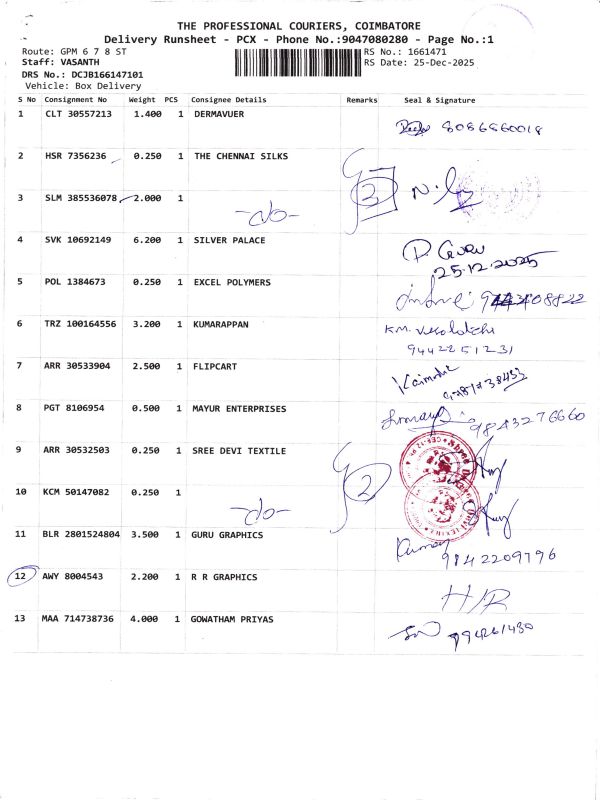 THE PROFESSIONAL COURIERS, COIMBATORE
Delivery Runsheet - PCX - Phone No.:9047080280 - Page No.:1
Route: GPM 6 7 8 ST RS No.: 1661471
Staff: VASANTH RS Date: 25-Dec-2025
DRS No.: DCJB166147101
Vehicle: Box Delivery
S No Consignment No Weight PCS Consignee Details Remarks Seal & Signature
1 CLT 30557213 1.400 1 DERMAVUER
8086660018
2 HSR 7356236 0.250 1 THE CHENNAI SILKS
3 SLM 385536078 2.000 1
-do- 2
4 SVK 10692149 6.200 1 SILVER PALACE
25.12.2025
5 POL 1384673 0.250 1 EXCEL POLYMERS
6 TRZ 100164556 3.200 1 KUMARAPPAN
9442251231
7 ARR 30533904 2.500 1 FLIPCART
8 PGT 8106954 0.500 1 MAYUR ENTERPRISES
9843276660
9 ARR 30532503 0.250 1 SREE DEVI TEXTILE
10 KCM 50147082 0.250 1
-do- 2
11 BLR 2801524804 3.500 1 GURU GRAPHICS
9842209796
12 AWY 8004543 2.200 1 R R GRAPHICS
H/R
13 MAA 714738736 4.000 1 GOWATHAM PRIYAS